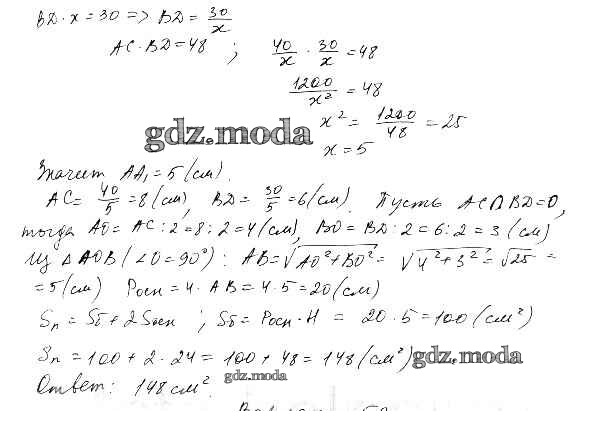 BD · x = 30 => BD = 30/x
AC · BD = 48 ; 40/x · 30/x = 48
1200/x² = 48
x² = 1200/48 = 25
gdz.moda
x = 5
Значит AA₁ = 5 (см).
AC = 40/5 = 8 (см), BD = 30/5 = 6 (см). Пусть AC∩BD=O,
тогда AO = AC : 2 = 8 : 2 = 4 (см), BO = BD : 2 = 6 : 2 = 3 (см)
Из △AOB (∠O = 90°) : AB = √AO² + BO² = √4² + 3² = √25 =
= 5 (см) Pосн = 4 · AB = 4 · 5 = 20 (см)
Sп = Sб + 2Sосн ; Sб = Pосн · H = 20 · 5 = 100 (см²)
Sп = 100 + 2 · 24 = 100 + 48 = 148 (см²) gdz.moda
gdz.moda
Ответ: 148 см².